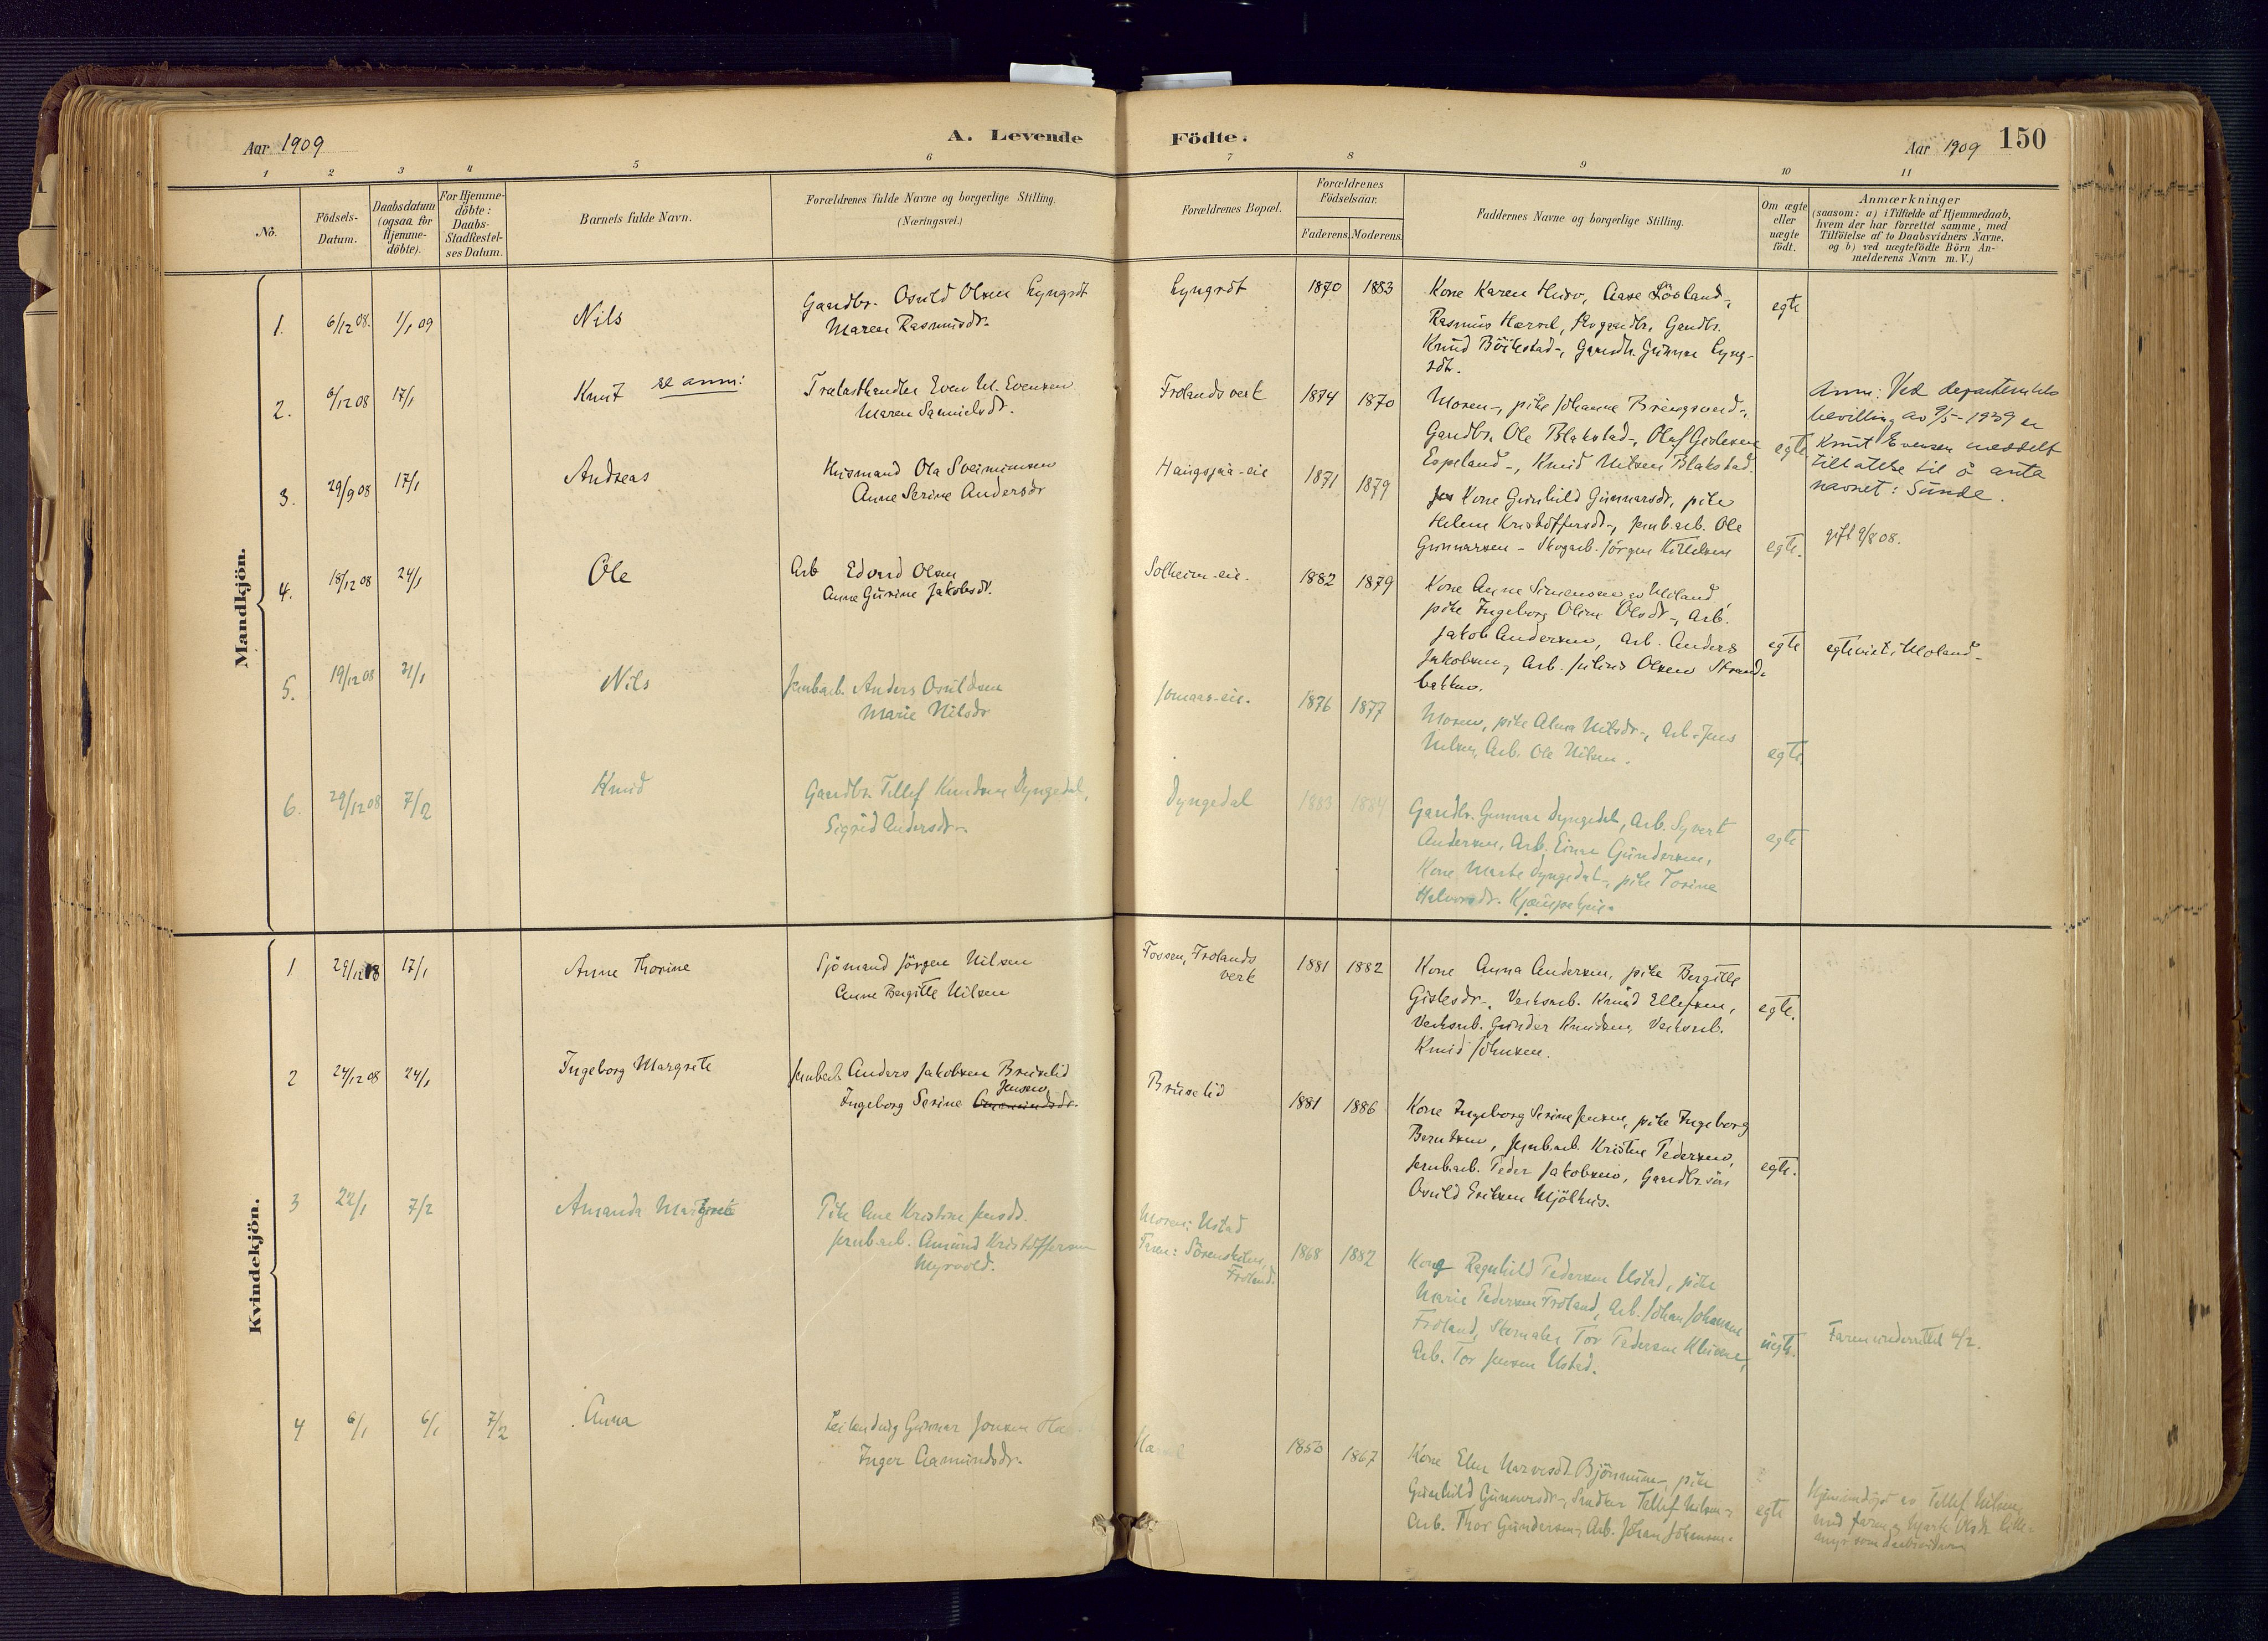 Aar 1909
A. Levende Födte.
Aar 1909 150
1 2 3 4 5 6 7 8 9 10 11
No.
Födsels-
Datum.
Daabsdatum
(ogsaa for
Hjemme-
döbte).
For Hjemme-
döbte:
Daabs-
Stadfæstel-
ses Datum.
Barnets fulde Navn.
Forældrenes fulde Navne og borgerlige Stilling
(Næringsvei.)
Forældrenes Bopæl.
Forældrenes
Födselsaar.
Faderens. Moderens.
Faddernes Navne og borgerlige Stilling.
Om ægte
eller
uægte
födt.
Anmærkninger
(saasom: a) i Tilfælde af Hjemmedaab,
hvem der har forrettet samme, med
Tilföielse af to Daabsvidners Navne,
og b) ved uægtefödte Börn An-
melderens Navn m. V.)
Mandkjön.
1. 6/12 08. 1/1 09 Nils
Gaardbr. Osuld Olsen Lyngröt
Maren Rasmusdr.
Lyngröt 1870 1883
Kone Karen, Aase Lövland,
Rasmus, Gaardbr.
Knud Böilestad, Gaardbr. Gunnar Lyng-
röt.
egte
2. 6/12 08 17/1 Knut se anm:
Trælasthandler Even M. Evensen
Maren Samuelsdr.
Frolands verk 1874 1870
Moren, pike Johanne Bringsverd,
Gaardbr. Ole Blakstad, Olaf Gislesen
Espeland, Knud Nilsen Blakstad.
egte
Anm: Ved departementets
bevilling av 9/5-1939 er
Knut Evensen meddelt
tillatelse til å anta
navnet: Sunde.
3. 29/9 08 17/1 Andreas
Husmand Ola Sveinunsen
Anne Serine Andersdr
Haugsjaa-eie 1871 1879
Kone Gunhild Gunnarsdr, pike
Helene Kristoffersdr, jernb.arb. Ole
Gunnarsen - Skogarb. Jörgen Kittelsen
egte.
gift 9/8 08.
4. 18/12 08 24/1 Ole
Arb Edvard Olsen
Anne Gurine Jakobsdr.
Solheim-eie. 1882 1879
Kone Anne Simonsen Moland,
pike Ingeborg Oline Olsdr, Arb.
Jakob Andersen, Arb. Anders
Jakobsen, Arb. Julius Olsen Strand-
bakken.
egte
egteviet i Moland
5. 19/12 08 31/1 Nils
Jernbarb. Anders Osuldsen
Marie Nilsdr
Jomaas-eie. 1876 1877
Moren, pike Alma Nilsdr, Arb. Jens
Nilsen, Arb. Ole Nilsen.
egte.
6. 29/12 08 7/2 Knud
Gaardbr. Tellef Knudsen Dyngedal,
Sigrid Andersdr.
Dyngedal 1883 1884
Gaardbr. Gunnar Dyngedal, Arb. Syvert
Andersen, Arb. Einar Gundersen,
Kone Marte Dyngedal, pike Torine
Halvorsdr.
egte
Kvindekjön.
1 29/12 08 17/1 Anne Thorine
Sjömand Jörgen Nilsen
Anne Bergitte Nilsen
Fossen, Frolands
verk
1881 1882
Kone Anna Andersen, pike Bergitte
Gislesdr, Verksarb. Knud Ellefsen,
Verksarb. Gunder Knudsen, Verksarb.
Knud Johnsen.
egte.
2 24/12 08 24/1 Ingeborg Margrete
Jernbarb. Anders Jakobsen Bruselid
Jensen
Ingeborg Serine Aamundsdr.
Bruselid 1881 1886
Kone Ingeborg Serine Jensen, pike Ingeborg
Berntsen, Jernb.arb. Kristen Pedersen,
Jernb.arb. Peder Jakobsen, Gaardbr.sön
Osuld Eriksen Mjölhus.
egte.
3 22/1 7/2 Amanda Margrete
Pike Ane Kristine Jensdr.
Jernb.arb. Amund Kristoffersen
Myrvold.
Moren: Ustad
Faren: Frolands
1868 1882
Kone Ragnhild Pedersen Ustad, pike
Marie Pedersen Froland, Arb. Johan Johansen
Froland, Skomaker Tor Pedersen,
Arb. Tor Jensen Ustad.
uegte.
Faren underrettet 6/2.
4 6/1 6/1 7/2 Anna
Leilending Gunnar Jonsen
Inger Aamundsdr.
1850 1867
Kone Elen, pike
Gunhild Gunnarsdr, Snedker Tellef Nilsen,
Arb. Thor Gundersen, Arb. Johan Johansen.
egte
Hjemmedöpt av Tellef Nilsen
med faren og
som daabsvidner